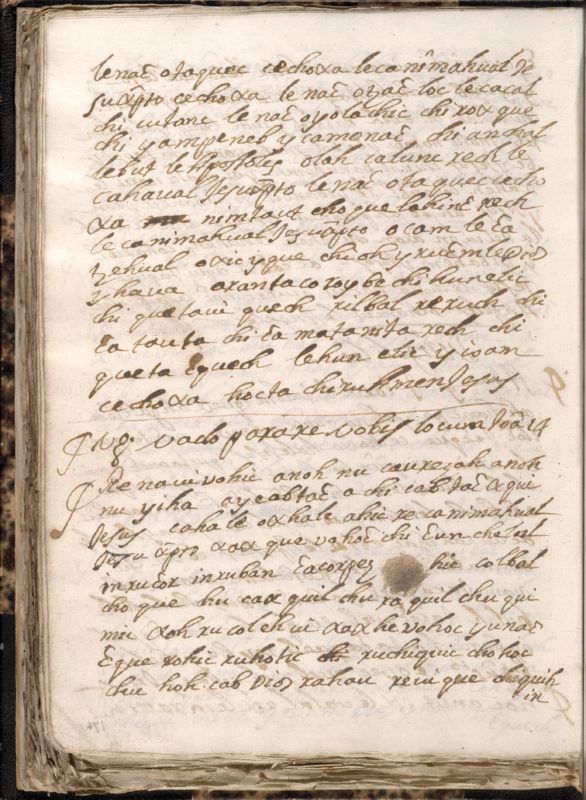 lenaē otaquec cechoxa lecanīmahual Je
suxpto cechoxa lenaē otzaē loc lecacal
chi cutanc lenaē oyola chic chi rox que
chi yampeneb y camenaē chi anmal
lebut le Apostoles olah calunc rech le
cahaual Jesuxpto lenaē otaquec cecho
xa nimtaut cho que lahinē rech
le canimahual Jesuxpto ocam le ēa
tzehual oxicyque chi oh y ruēm le Dios
yhaua arantacoroy be chi hunelic
chi quetaui quech rilbal reruch chi
ēatouta chi ēa matanita rech chi
queta ēquech lehun elic yisam
cechoxa hocta chiruhmen Jesus
Vado parare vobis locum Joā 14
Renauivohic anoh nu caurezah anoh
nu yiha ayeabtaē a chi cab taē aqui
Jesus caha le oxhale ahic re canimahual
Jesu xpto xax que vohoē chi ēun chelal
inruēox inruban ēacorpez hic colbal
cho que hu cax quil chu ra quil chu qui
mic xoh rucoleh ui xax he vohoc yunaē
ēque rohic ruhotic ruchiquic chohoc
chu hoh cab Dios rahau reui que chiquih
in